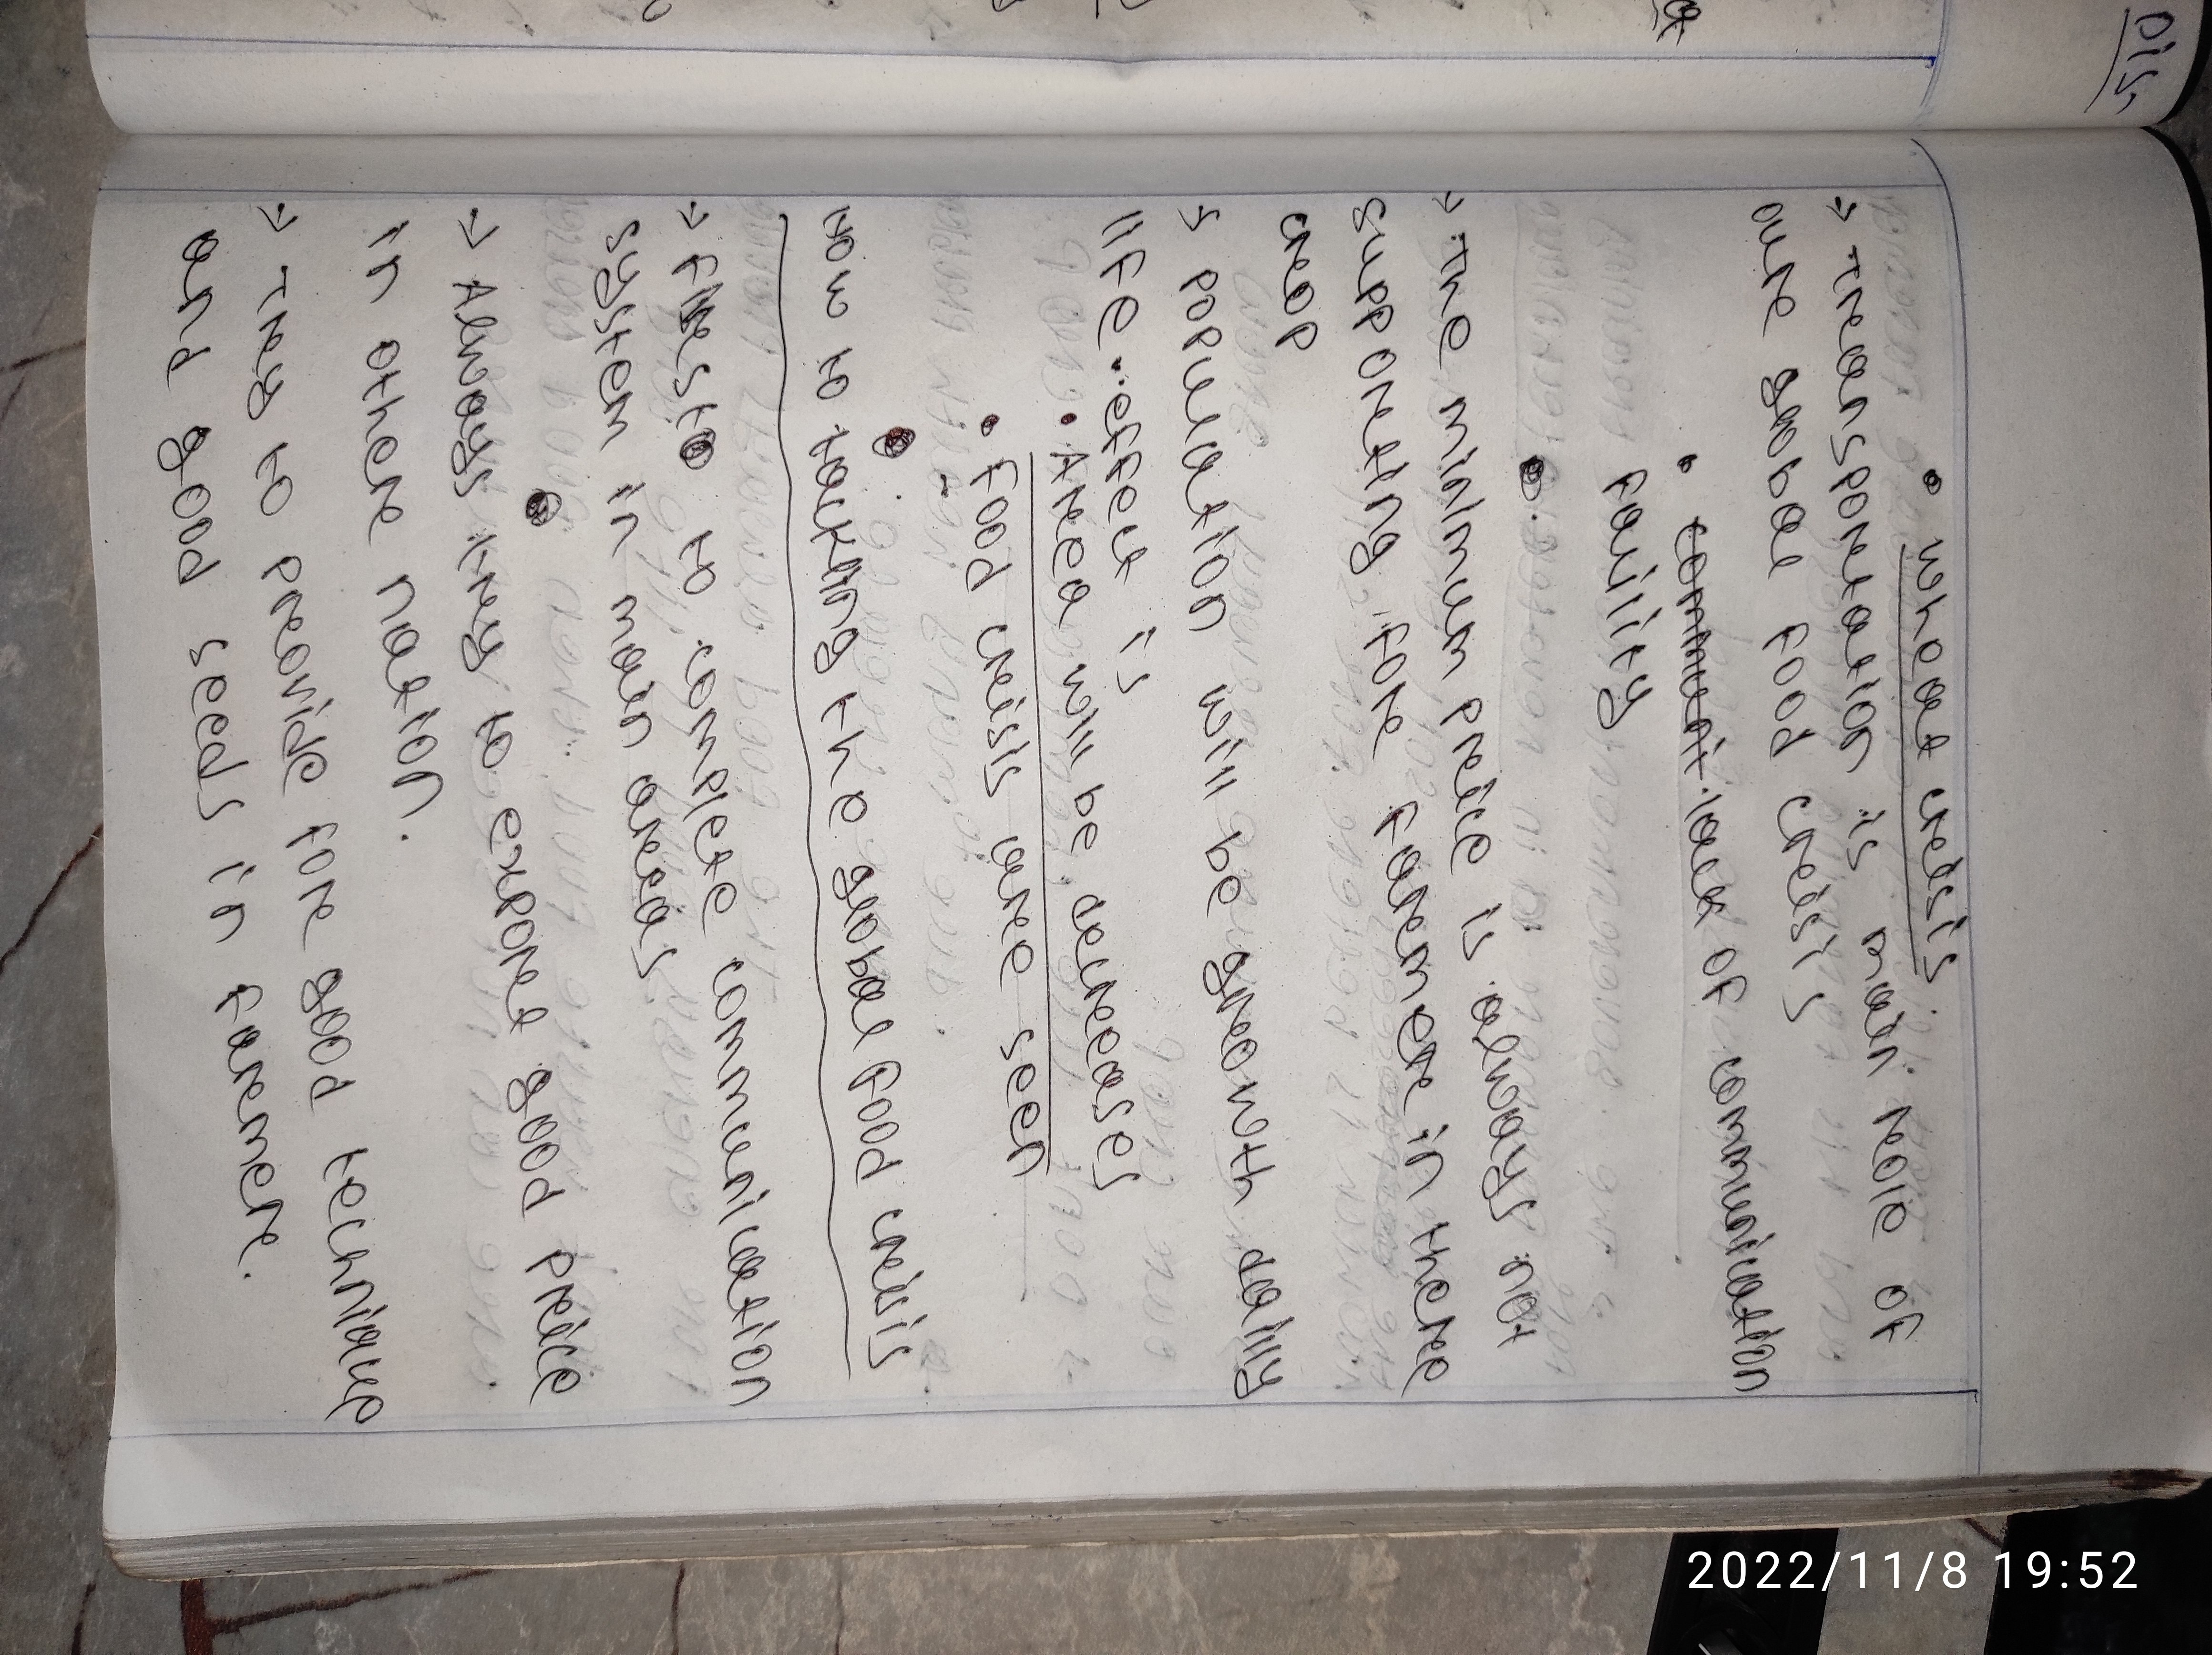 • wheat creisis.
→ Treansporetation is main reole of
oure gloobal food creisis
• lack of communication
facility
→ The minimum preice is always not
supporeting fore faremere in there
creop
→ population will be greowth daily
life. effect is
• Area will be decreeases
• food creisis aree seen
How to tackling the gloobal food creisis
→ firest to to complete communication
system in main areeas
→ Always trey to exporet good preice
in othere nation.
→ Trey to preovide fore good technique
and good seeds in faremere.
2022/11/8 19:52